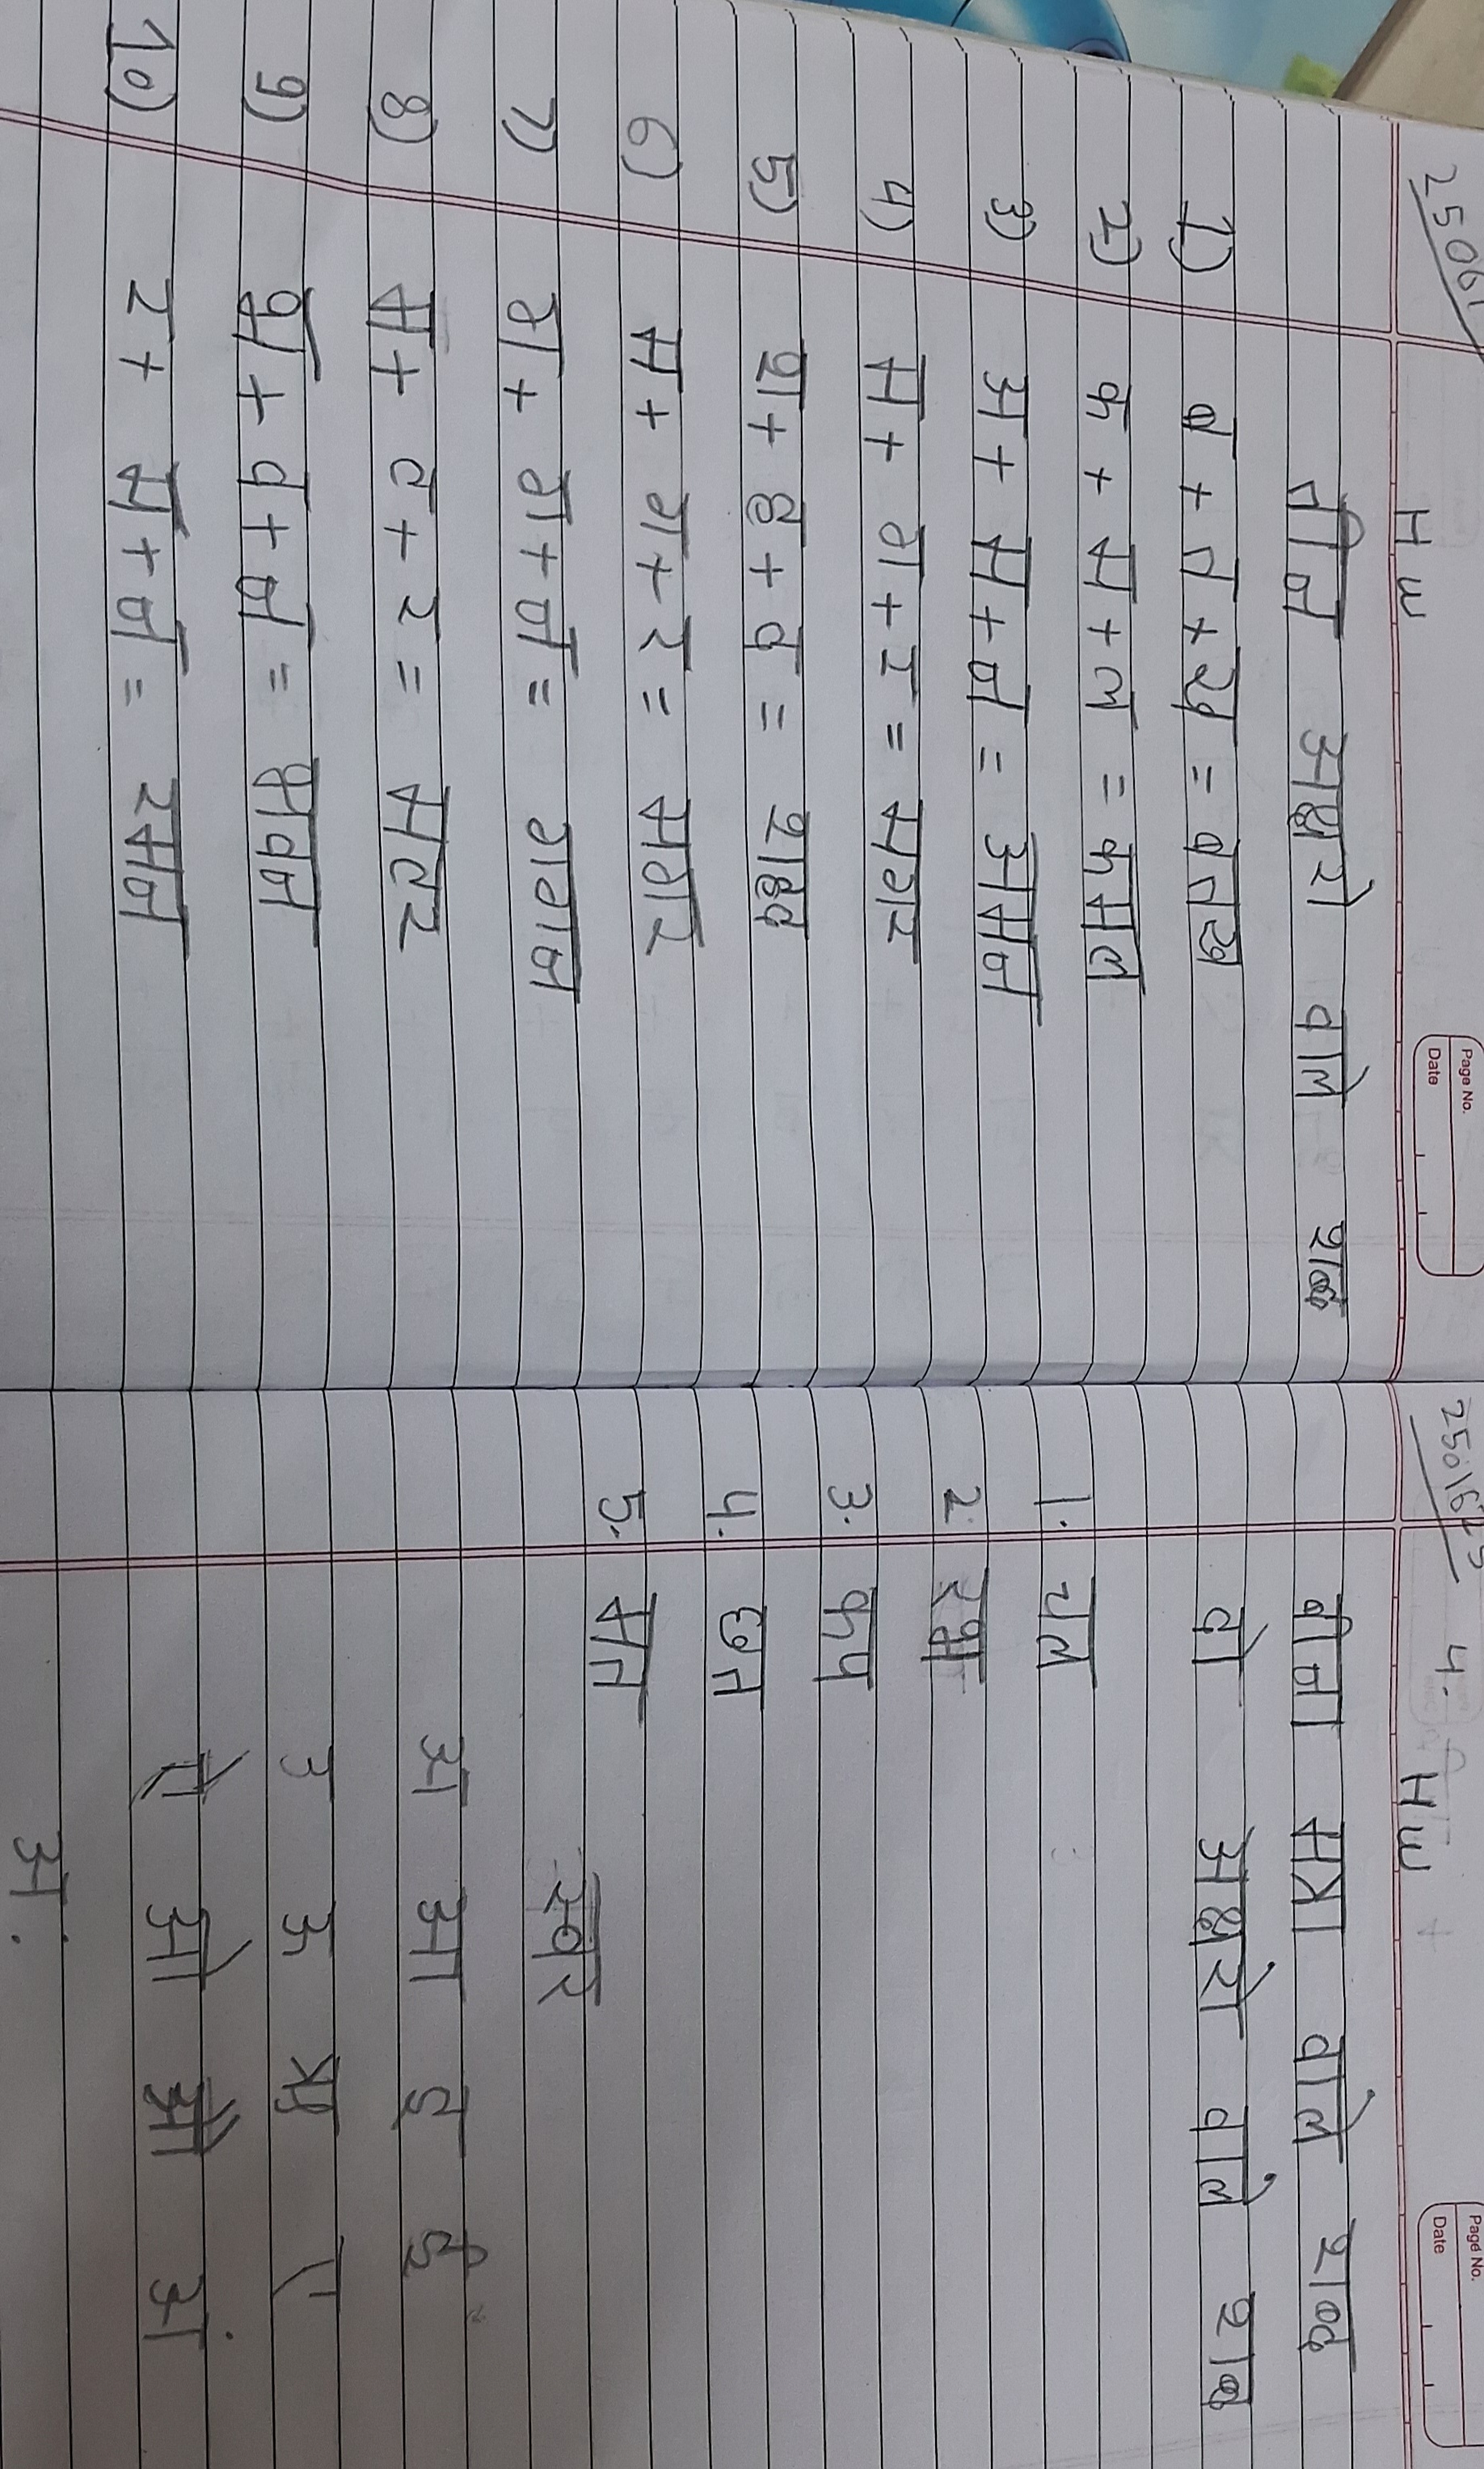 HW
Page No.
Date
तीन अक्षरो वाले शब्द
1) ब + त + ख = बतख
2) क + म + ल = कमल
3) अ + म + न = अमन
4) म + ग + र = मगर
5) श + ह + द = शहद
6) म + ग + र = मगर
7) ग + ग + न = गगन
8) म + ट + र = मटर
9) भ + व + न = भवन
10) र + म + न = रमन
4. HW
Page No.
Date
बीना मात्रा वाले शब्द
दो अक्षरो वाले शब्द
1. चल
2.
3. कप
4. छत
5. मत
स्वर
अ आ इ ई
उ ऊ ऋ ए
ऐ ओ औ अं
अ: